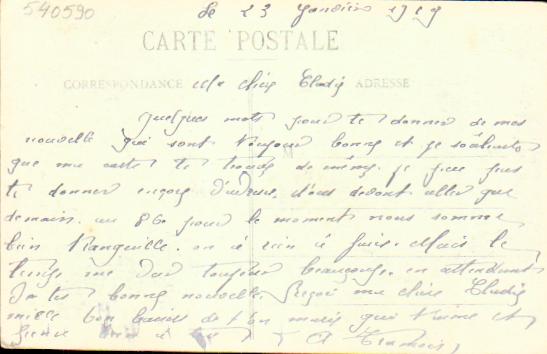 540590
le 23 Janvier 1919
CARTE POSTALE
CORRESPONDANCE Ma chère Elodie ADRESSE
Quelques mots pour te donner de mes
nouvelle qui sont toujour bonne et je souhaite
que ma carte te trouve de même. je peu pas
te donner encore d'adresse. nous devont aller que
demain. au 86e pour le moment nous somme
bien tranquille. on à rien à faire. Mais le
temps me dur toujour beaucoup. en attendant
de tes bonne nouvelle. Reçoi ma chère Elodie
mille bon baisers de ton mari qui t'aime et
pense à toi